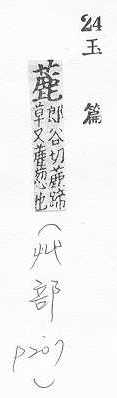 24 玉篇
蔍
郎谷切蔍蹄
草又蔍葱也
(艸部 P207)